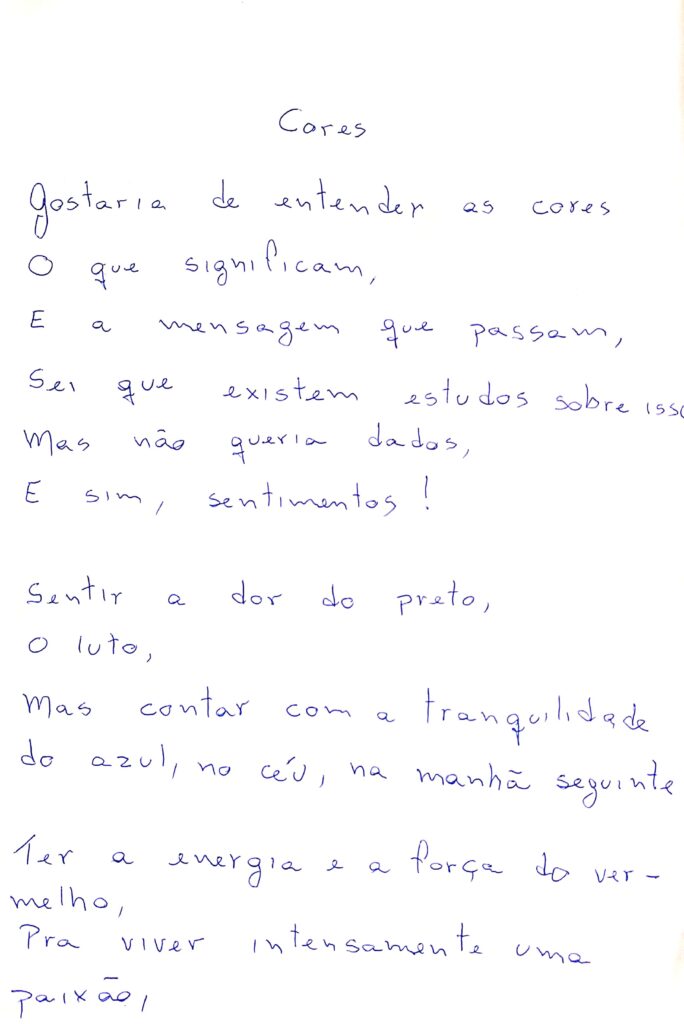 Cores
Gostaria de entender as cores
O que significam,
E a mensagem que passam,
Sei que existem estudos sobre isso
Mas não queria dados,
E sim, sentimentos!
Sentir a dor do preto,
O luto,
Mas contar com a tranquilidade
do azul, no céu, na manhã seguinte
Ter a energia e a força do ver-
melho,
Pra viver intensamente uma
paixão,